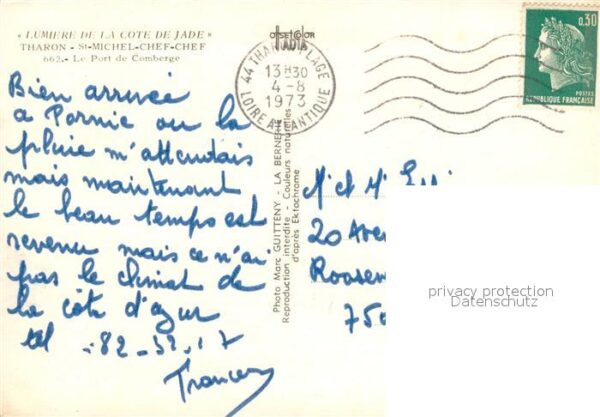 « LUMIERE DE LA COTE DE JADE »
THARON - St-MICHEL-CHEF-CHEF
662.- Le Port de Comberge
Bien arrivée
a Pornic ou la
pluie m'attendais
mais maintenant
le beau temps est
revenu mais ce n'ai
pas le climat de
la côte d'azur
tel -82-32.17
OFFSET COLOR
Photo Marc GUITTENY - LA BERNERIE
Reproduction interdite - Couleurs naturelles
d'après Ektachrome
44 THARON PLAGE
13H30
4-8
1973
LOIRE ATLANTIQUE
0,30
POSTES
REPUBLIQUE FRANÇAISE
M et M
20 Ave
750
privacy protection
Datenschutz